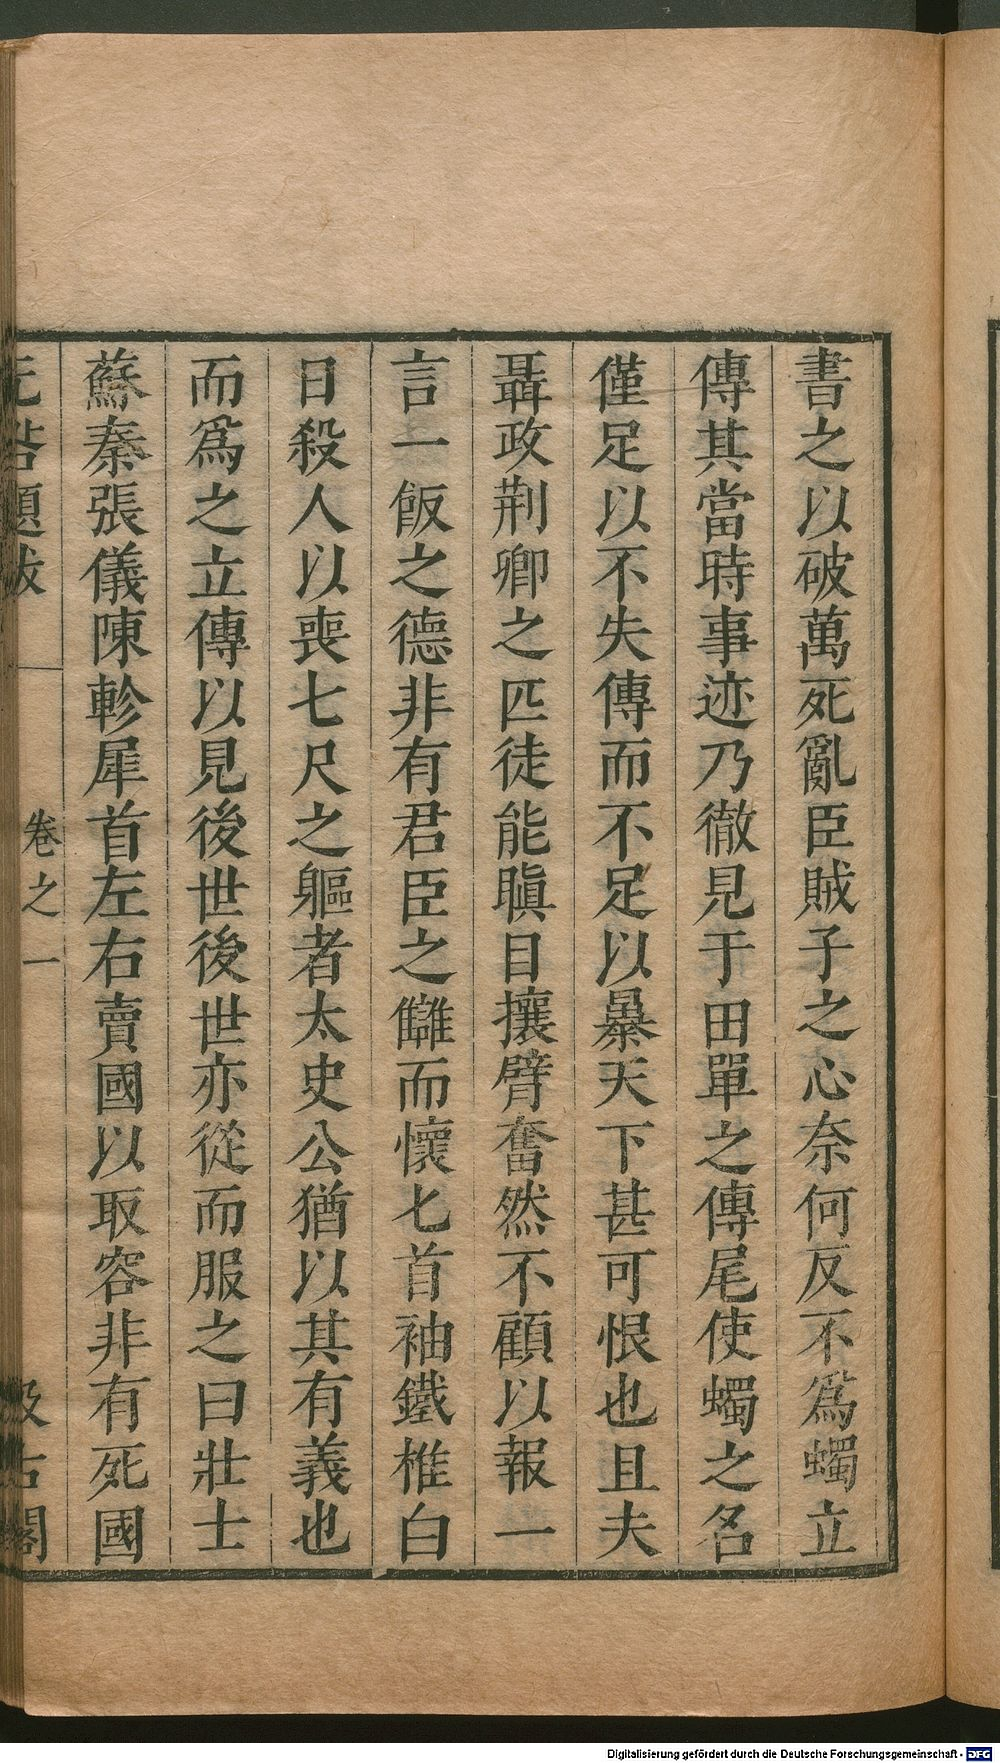 書之以破萬死亂臣賊子之心奈何反不爲蠋立
傳其當時事迹乃徹見于田單之傳尾使蠋之名
僅足以不失傳而不足以暴天下甚可恨也且夫
聶政荆卿之匹徒能瞋目攘臂奮然不顧以報一
言一飯之德非有君臣之讎而懷匕首袖鐵椎白
日殺人以喪七尺之軀者太史公猶以其有義也
而爲之立傳以見後世後世亦從而服之曰壯士
蘇秦張儀陳軫犀首左右賣國以取容非有死國
元咎題跋
卷之一
汲古閣
Digitalisierung gefördert durch die Deutsche Forschungsgemeinschaft - DFG